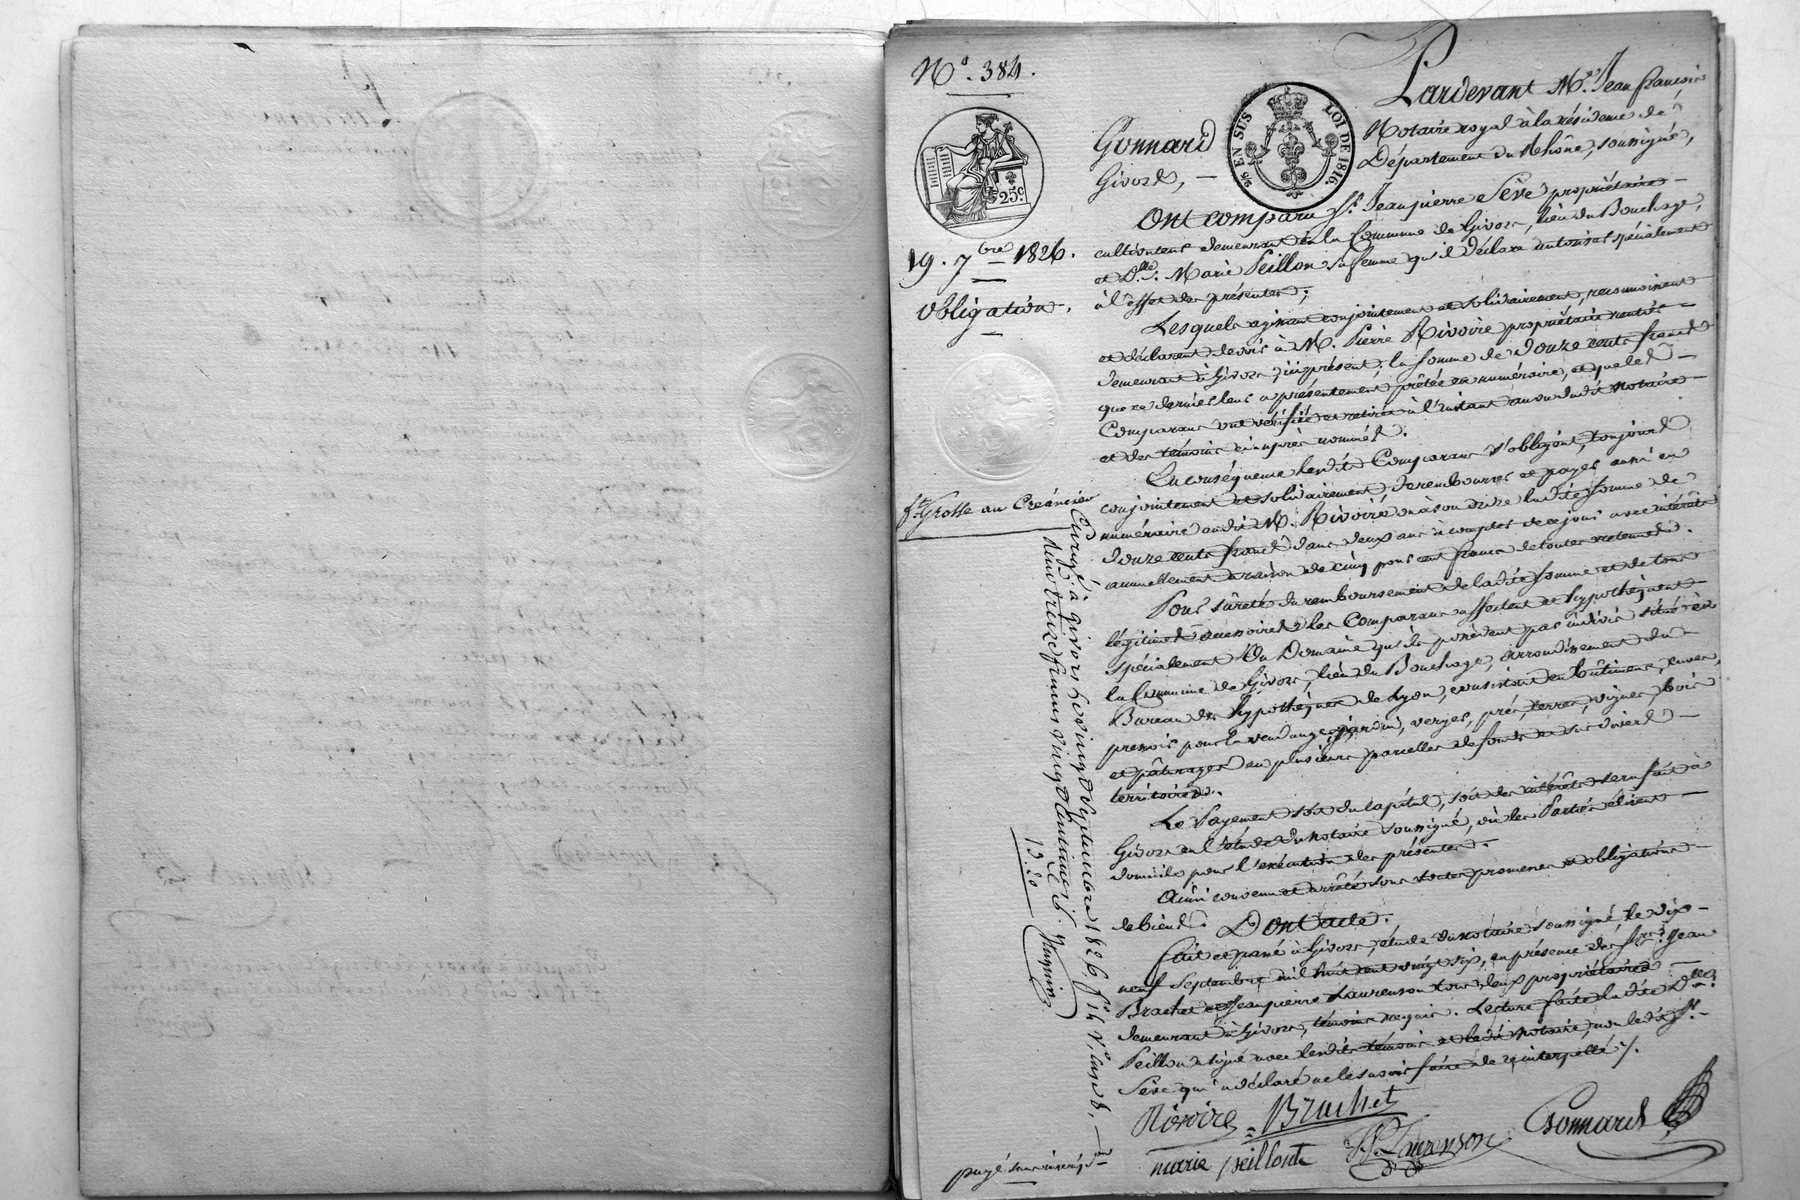 N.° 384.
25.c
19. 7.bre 1826.
Obligation.
f.t Grosse au Créancier
EN SUS LOI DE 1816.
Pardevant M.e Jean françois
Gonnard Notaire royal à la résidence de
Givors, — Département du Rhône, soussigné,
Ont comparu S.r Jeanpierre Sève propriétaire —
cultivateur demeurant en la Commune de Givors, lieu du Bouchage,
et D.lle Marie Peillon sa femme qu'il déclare autoriser spécialement
à l'effet des présentes;
Lesquels agissant conjointement et solidairement, reconnoissent
et déclarent devoir à M. Pierre Rivoire propriétaire rentier —
demeurant à Givors, ici présent, la somme de douze cents francs
que ce dernier leur a présentement prêtée en numéraire, et que les d. —
Comparans ont vérifiée et retirée à l'instant au vu dudit notaire —
et des témoins ci-après nommés.
En conséquence lesdits Comparans s'obligent, toujours
conjointement et solidairement, de rembourser et payer aussi en
numéraire audit M. Rivoire ou à son ordre ladite somme de
douze cents francs dans deux ans à compter de ce jour avec intérêts
annuellement à raison de cinq pour cent francs de toutes retenues.
Pour sûreté du remboursement de ladite somme et de tous
légitimes accessoires les Comparans affectent et hypothèquent
spécialement Un Domaine qu'ils possèdent par indivis situé en
la Commune de Givors, lieu du Bouchage, arrondissement du
Bureau des hypothèques de Lyon, consistant en bâtimens, cuves,
pressoir pour la vendange, jardin, verger, prés, terres, vignes, bois
et pâturages en plusieurs parcelles de fonds et sur divers —
territoires.
Le Payement soit du Capital, soit des intérêts sera fait à
Givors en l'étude du notaire soussigné, où les Parties élisent —
domicile pour l'exécution des présentes.
Ainsi convenu et arrêté sous toutes promesses et obligations —
de biens. Dont acte.
Fait et passé à Givors, étude du notaire soussigné, le dix-
neuf Septembre mil huit cent vingt six, en présence des S.rs Jean
Brachet et Jeanpierre Laurenson tous deux propriétaires —
demeurant à Givors, témoins requis. Lecture faite ladite D.lle
Peillon a signé avec lesdits témoins et ledit notaire, non ledit S.r
Sève qui a déclaré ne le savoir faire de ce interpellé ./.
Rivoire Brachet
marie peillont J.P. Laurenson Gonnard
payé sans inscript.on
Enregé à givors le vingt Septembre 1826 f.° 14 V.° Cases 8, —
reçu treize francs vingt centimes
13.20